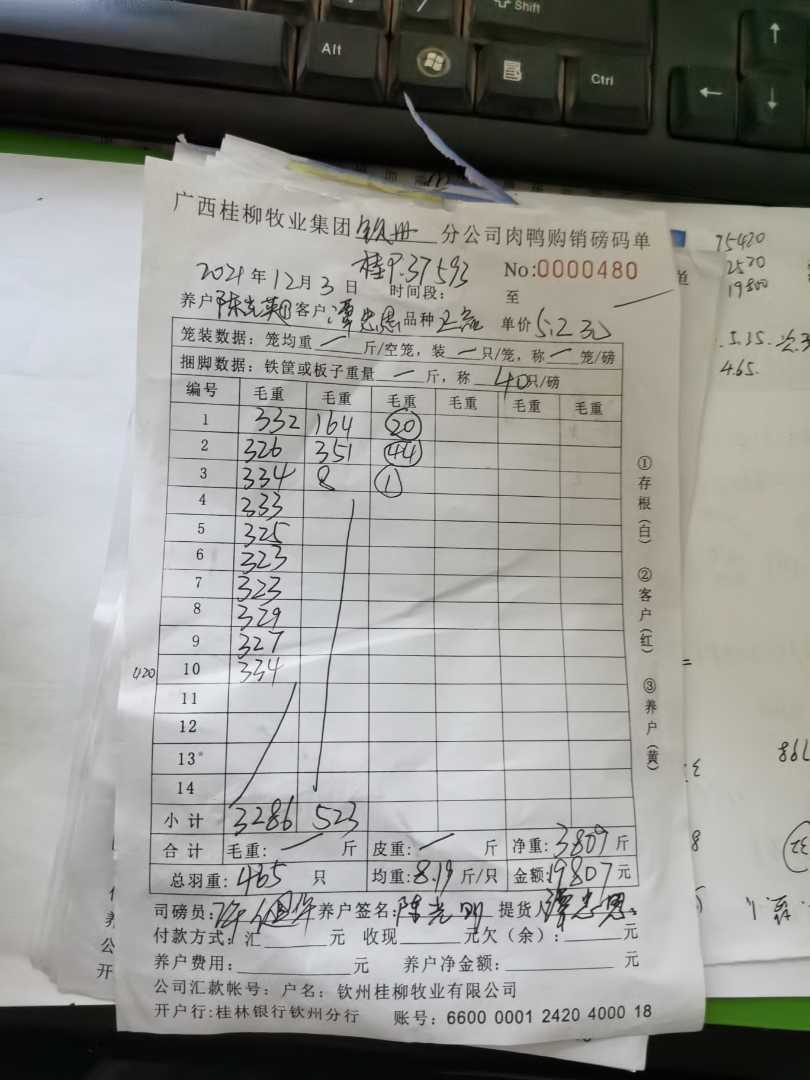 Shift
Alt
Ctrl
广西桂柳牧业集团钦州分公司肉鸭购销磅码单
桂P.37593
No:0000480
2021年12月3日 时间段: 至
养户 陈光英 客户: 谭忠恩 品种 单价 5.2元
笼装数据: 笼均重 一 斤/空笼, 装 一 只/笼, 称 一 笼/磅
捆脚数据: 铁筐或板子重量 一 斤, 称 40只/磅
编号 毛重 毛重 毛重 毛重 毛重 毛重
1 332 164 20
2 326 351 44
3 334 8 1
4 333
5 325
6 323
7 323
8 329
9 327
420 10 334
11
12
13
14
小计 3286 523
合计 毛重: 一 斤 皮重: 一 斤 净重: 3809 斤
总羽重: 465 只 均重: 8.19 斤/只 金额: 19807 元
司磅员: 养户签名: 陈光明 提货人 谭忠恩
付款方式: 汇 元 收现 元欠(余): 元
养户费用: 元 养户净金额: 元
公司汇款帐号: 户名: 钦州桂柳牧业有限公司
开户行:桂林银行钦州分行 账号: 6600 0001 2420 4000 18
①存根(白) ②客户(红) ③养户(黄)
75420
2570
19800
5.35
4.65